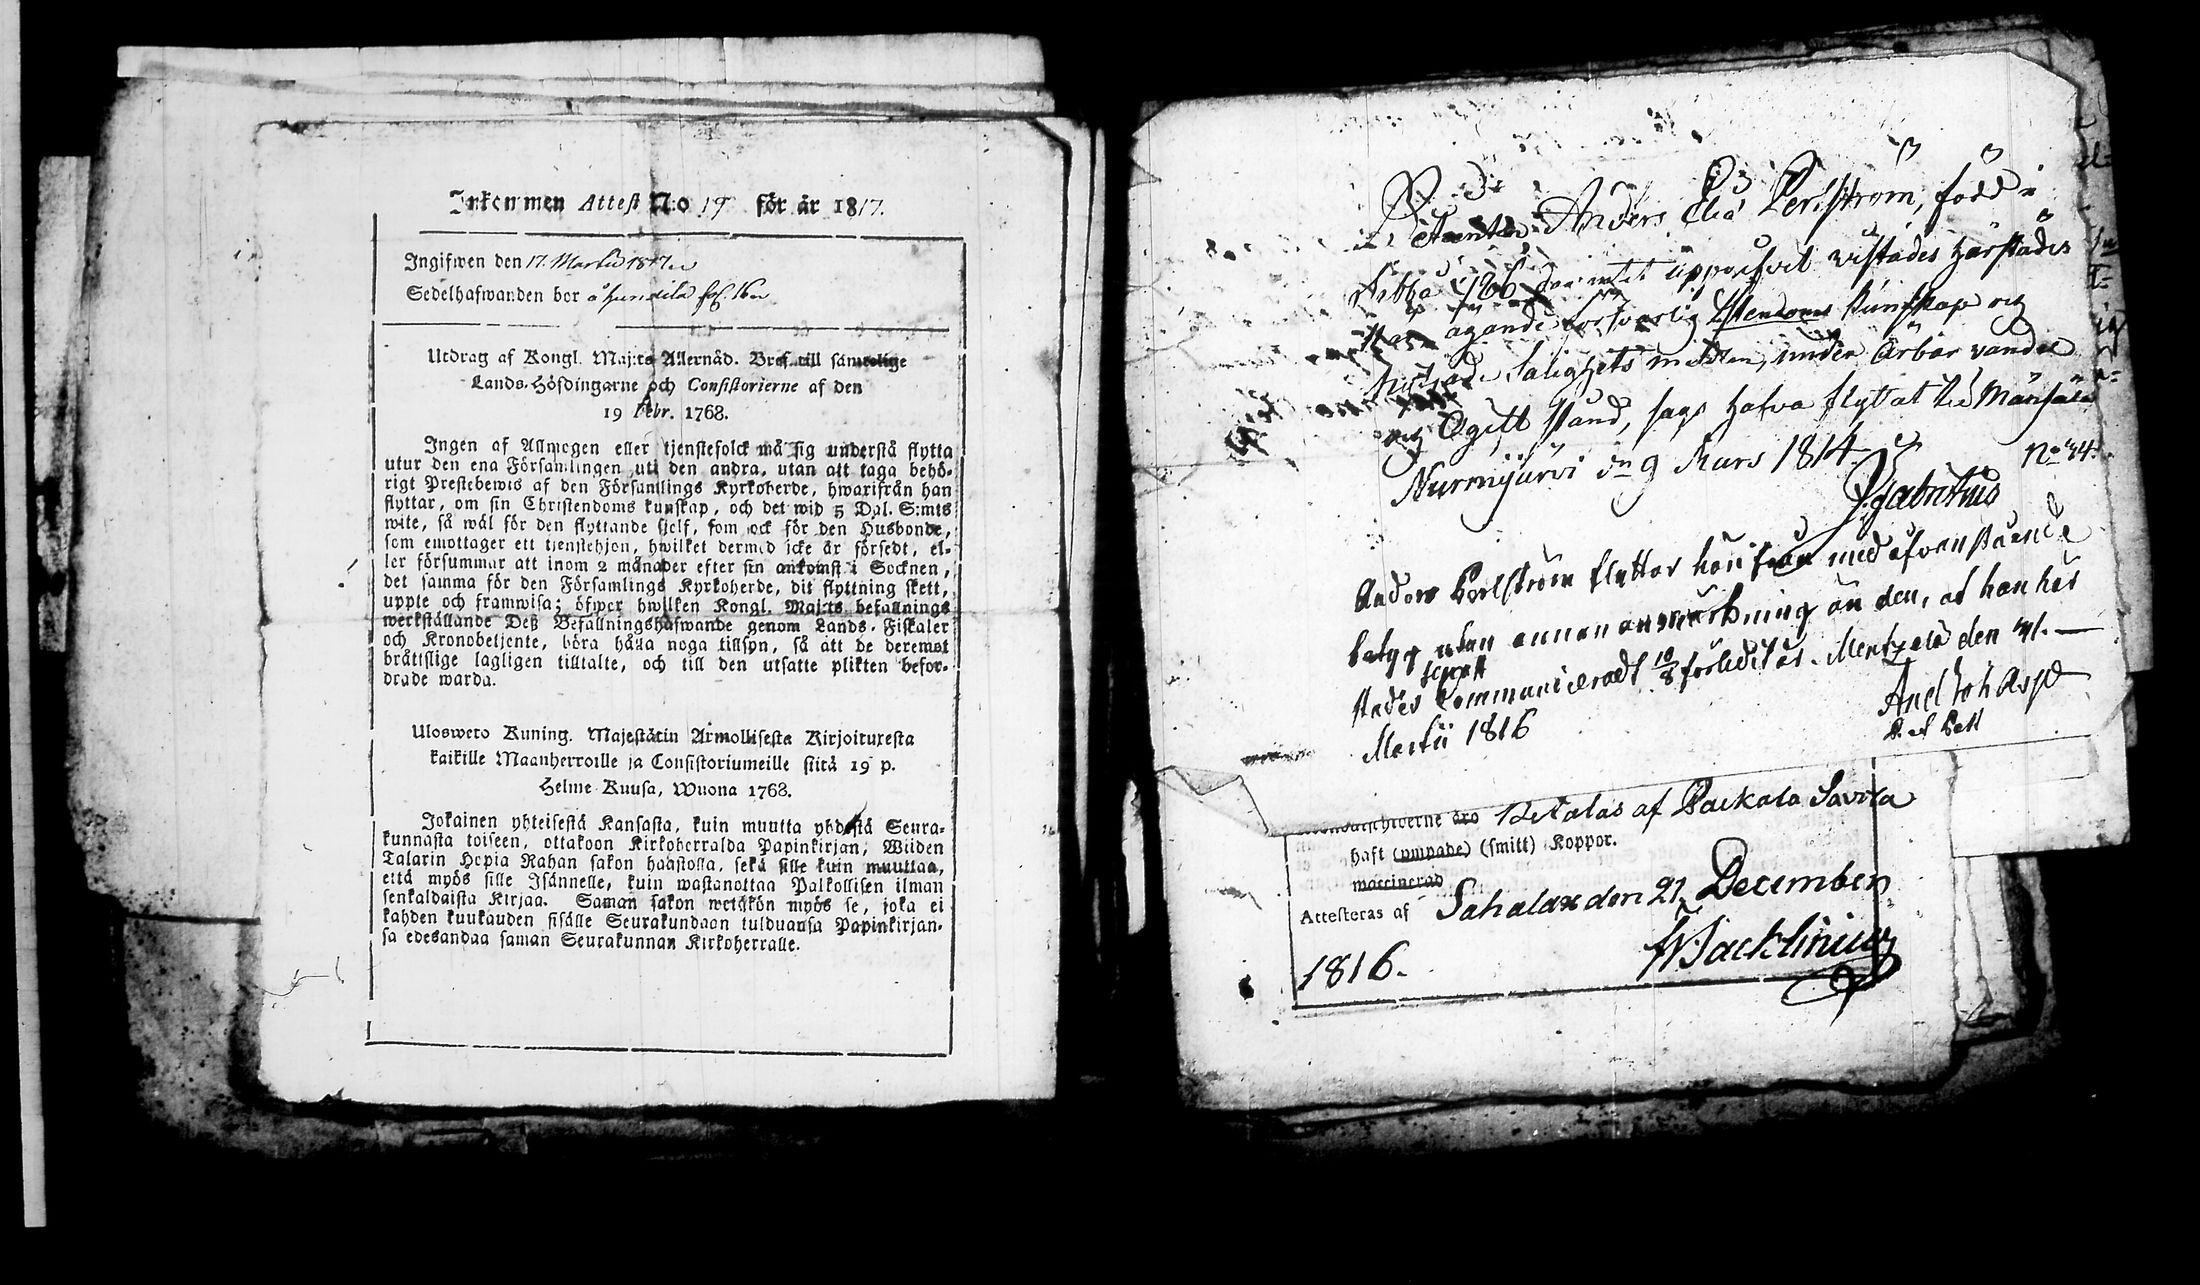 Inkommen Attest No 19 för år 1817.
Ingifwen den 17 Martii 1817
Sedelhafwanden bor å
Utdrag af Kongl. Maj:ts Allernåd. Bref till samtelige
Lands-Höfdingarne och Consistorierne af den
19 Febr. 1768.
Ingen af Allmogen eller tjenstefolck må sig understå flytta
utur den ena Församlingen uti den andra, utan att taga behö-
rigt Prestebewis af den Församlings Kyrkoherde, hwarifrån han
flyttar, om sin Christendoms kunskap, och det wid 5 Dal. S:mts
wite, så wäl för den flyttande sjelf, som ock för den Husbonde,
som emottager ett tjenstehjon, hwilket dermed icke är försedt, el-
ler försummar att inom 2 månader efter sin ankomst i Socknen,
det samma för den Församlings Kyrkoherde, dit flyttning skett,
uppte och framwisa; öfwer hwilken Kongl. Maj:ts befallnings
werkställande Deß Befallningshafwande genom Lands-Fiskaler
och Kronobetjente, böra hålla noga tillsyn, så att de deremot
bråttslige lagligen tilltalte, och till den utsatte plikten befor-
drade warda.
Uloswero Kuning. Majestätin Armollisesta Kirjoituxesta
kaikille Maanherroille ja Consistoriumeille siitä 19 p.
Helme-Kuusa, Wuona 1768.
Jokainen yhteisestä Kansasta, kuin muutta yhdestä Seura-
kunnasta toiseen, ottakoon Kirkoherralda Papinkirjan, Wiiden
Talarin Hopia Rahan sakon haastolla, sekä sille kuin muuttaa,
että myös sille Isännelle, kuin wastanottaa Palkollisen ilman
senkaldaista Kirjaa. Saman sakon wetäkön myös se, joka ei
kahden kuukauden sisälle Seurakundaan tulduansa Papinkirjan-
sa edesandaa saman Seurakunnan Kirkoherralle.
Anders Perlström, född i
Sibbo 1766 vistades härstädes
ägande försvarlig Christendoms kunskap och
Salighets medlen, under ärbar vandel
och Ogift stånd, säges hafva flyttat till Mäntsälä
Nurmijärvi d:n 9 Mars 1814
No 34.
Anders Perlström flyttar härifrån med ofvanstående
betyg utan annan anmärkning än den, at han här
sednast
städes Communiceradt 10/8 förledit år. Mentzälä den 31.
Martii 1816
And Joh Asp
Betalas af Packala Savila
haft (ympade) (smitt) Koppor.
vaccinerad
Attesteras af Sahalax den 21 December
1816.